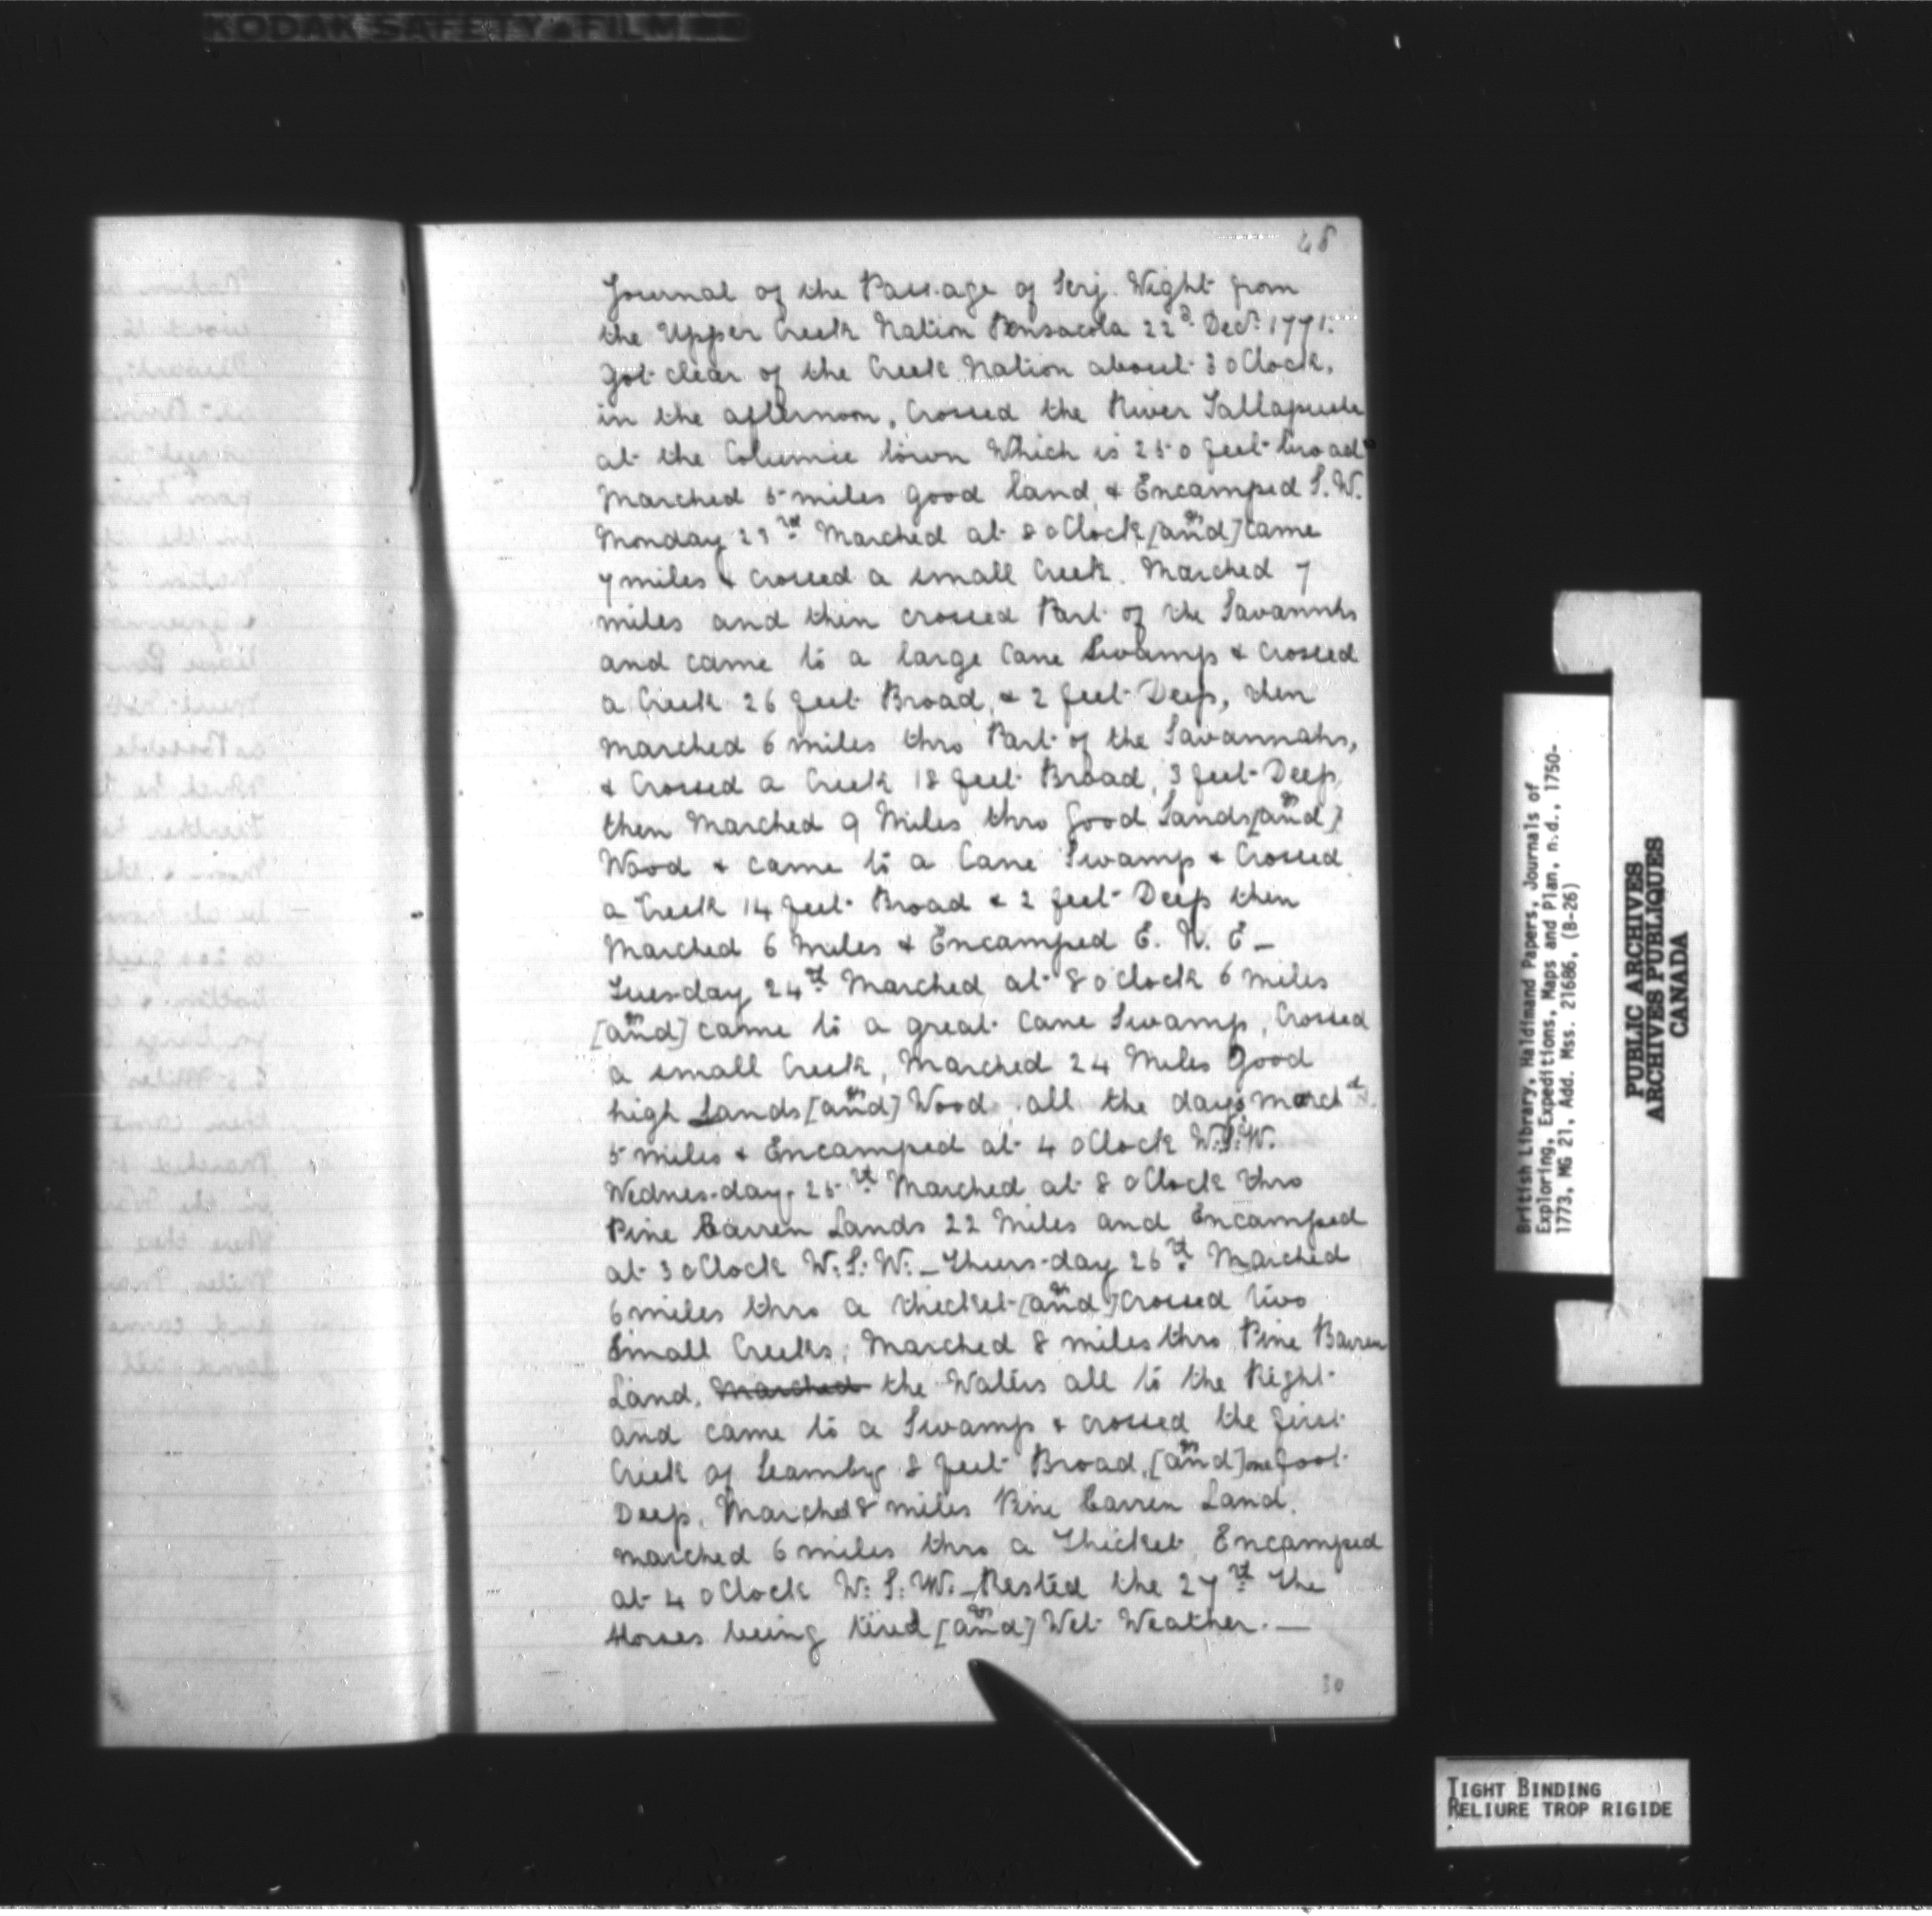 KODAK SAFETY FILM
48
Journal of the Passage of Serj. Wight from
the Upper Creek Nation Pensacola 22d Decr. 1771.
Got clear of the Creek Nation about 3 oClock,
in the afternoon, Crossed the River Tallapuide
at the Columie town Which is 250 feet broad
Marched 5 miles good land, & Encamped S.W.
Monday 23rd Marched at 8 oClock [and] came
7 miles & crossed a small Creek. Marched 7
miles and then crossed Part of the Savannhs
and came to a large Cane Swamp & Crossed
a Creek 26 feet Broad, & 2 feet Deep, then
marched 6 miles thro Part of the Savannahs,
& Crossed a Creek 18 feet Broad, 3 feet Deep,
then Marched 9 Miles thro Good Lands [and]
Wood & came to a Cane Swamp & Crossed
a Creek 14 feet Broad & 2 feet Deep then
Marched 6 Miles & Encamped E. N. E—
Tuesday 24th Marched at 8 oClock 6 miles
[and] came to a great Cane Swamp, Crossed
a small Creek, Marched 24 Miles Good
high Lands [and] Wood all the days march
5 miles & Encamped at 4 oClock W.S.W.
Wednes-day 25th Marched at 8 oClock thro
Pine Barren Lands 22 Miles and Encamped
at 3 oClock W:S:W:—Thurs-day 26th Marched
6 miles thro a thicket [and] Crossed two
Small Creeks, Marched 8 miles thro Pine Barren
Land, Marched the Waters all to the Right
and came to a Swamp & crossed the first
Creek of Scamby 8 feet Broad, [and] one foot
Deep, Marchd 8 miles Pine barren Land,
marched 6 miles thro a Thicket, Encamped
at 4 oClock W:S:W.—Rested the 27th The
Horses being tired [and] Wet Weather.—
30
British Library, Haldimand Papers, Journals of
Exploring, Expeditions, Maps and Plan, n.d., 1750-
1773, MG 21, Add. Mss. 21686, (B-26)
PUBLIC ARCHIVES
ARCHIVES PUBLIQUES
CANADA
TIGHT BINDING
RELIURE TROP RIGIDE